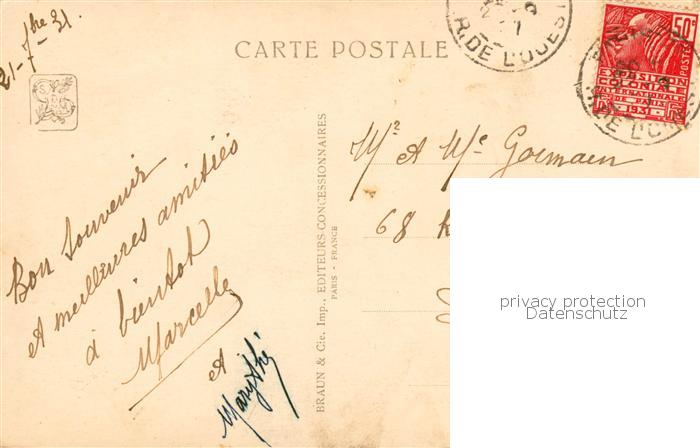 21-7bre-31.
CARTE POSTALE
R. DE L'OUEST
50c
POSTES
EXPOSITION
COLONIALE
INTERNATIONALE
DE PARIS
1931
R. DE L'OUEST
Bon souvenir
et meilleures amitiés
à bientôt
Marcelle
et
Marythé
BRAUN & Cie. Imp., EDITEURS-CONCESSIONNAIRES
PARIS - FRANCE
Mr & Me Germain
68
privacy protection
Datenschutz